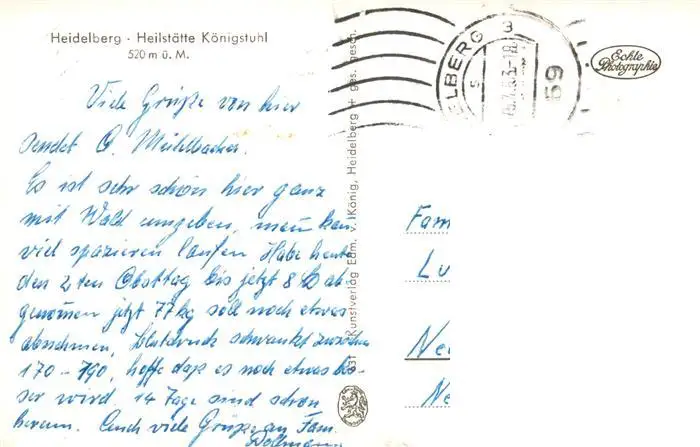 Heidelberg · Heilstätte Königstuhl
520 m ü. M.
Viele Grüße von hier
sendet O.
Es ist sehr schön hier ganz
mit Wald umgeben, man kan
viel spazieren laufen Habe heute
den 2ten Obsttag bis jetzt 8 ab-
genommen jetzt 77 kg soll noch etwas
abnehmen, blutdruck schwankt zwischen
170 - 190, hoffe daß es noch etwas bes-
ser wird, 14 Tage sind schon
herum. Auch viele Grüße an Fam.
Kunstverlag Edm. v. König, Heidelberg + ges. gesch.
ELBERG 3
59
Echte
Photographie
Fam
Lu
Ne
Ne